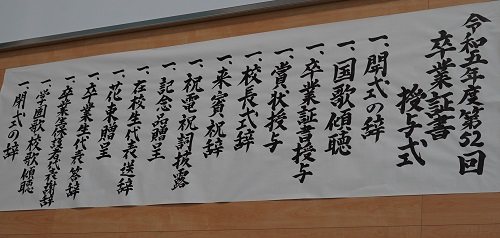 令和五年度第52回
卒業証書
授与式
一、開式の辞
一、国歌傾聴
一、卒業証書授与
一、賞状授与
一、校長式辞
一、来賓祝辞
一、祝電・祝詞披露
一、記念品贈呈
一、在校生代表送辞
一、花束贈呈
一、卒業生代表答辞
一、卒業生保護者代表謝辞
一、学園歌校歌傾聴
一、閉式の辞